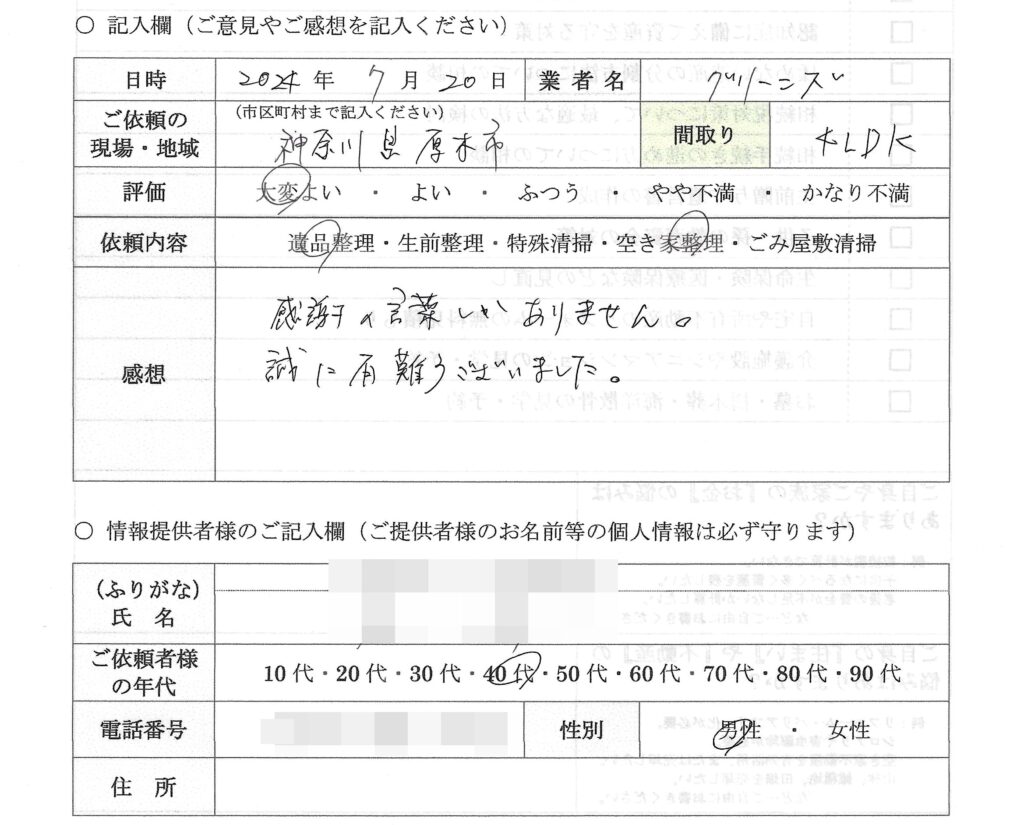 ○ 記入欄（ご意見やご感想を記入ください）
日時 2024 年 7 月 20 日 業者名 グリーンズ
ご依頼の現場・地域 (市区町村まで記入ください) 神奈川県厚木市 間取り 4LDK
評価 大変よい ・ よい ・ ふつう ・ やや不満 ・ かなり不満
依頼内容 遺品整理・生前整理・特殊清掃・空き家整理・ごみ屋敷清掃
感想
感謝の言葉しかありません。
誠に有難うございました。
○ 情報提供者様のご記入欄（ご提供者様のお名前等の個人情報は必ず守ります）
(ふりがな)
氏 名
ご依頼者様の年代 10 代・20 代・30 代・40 代・50 代・60 代・70 代・80 代・90 代
電話番号 性別 男性 ・ 女性
住 所